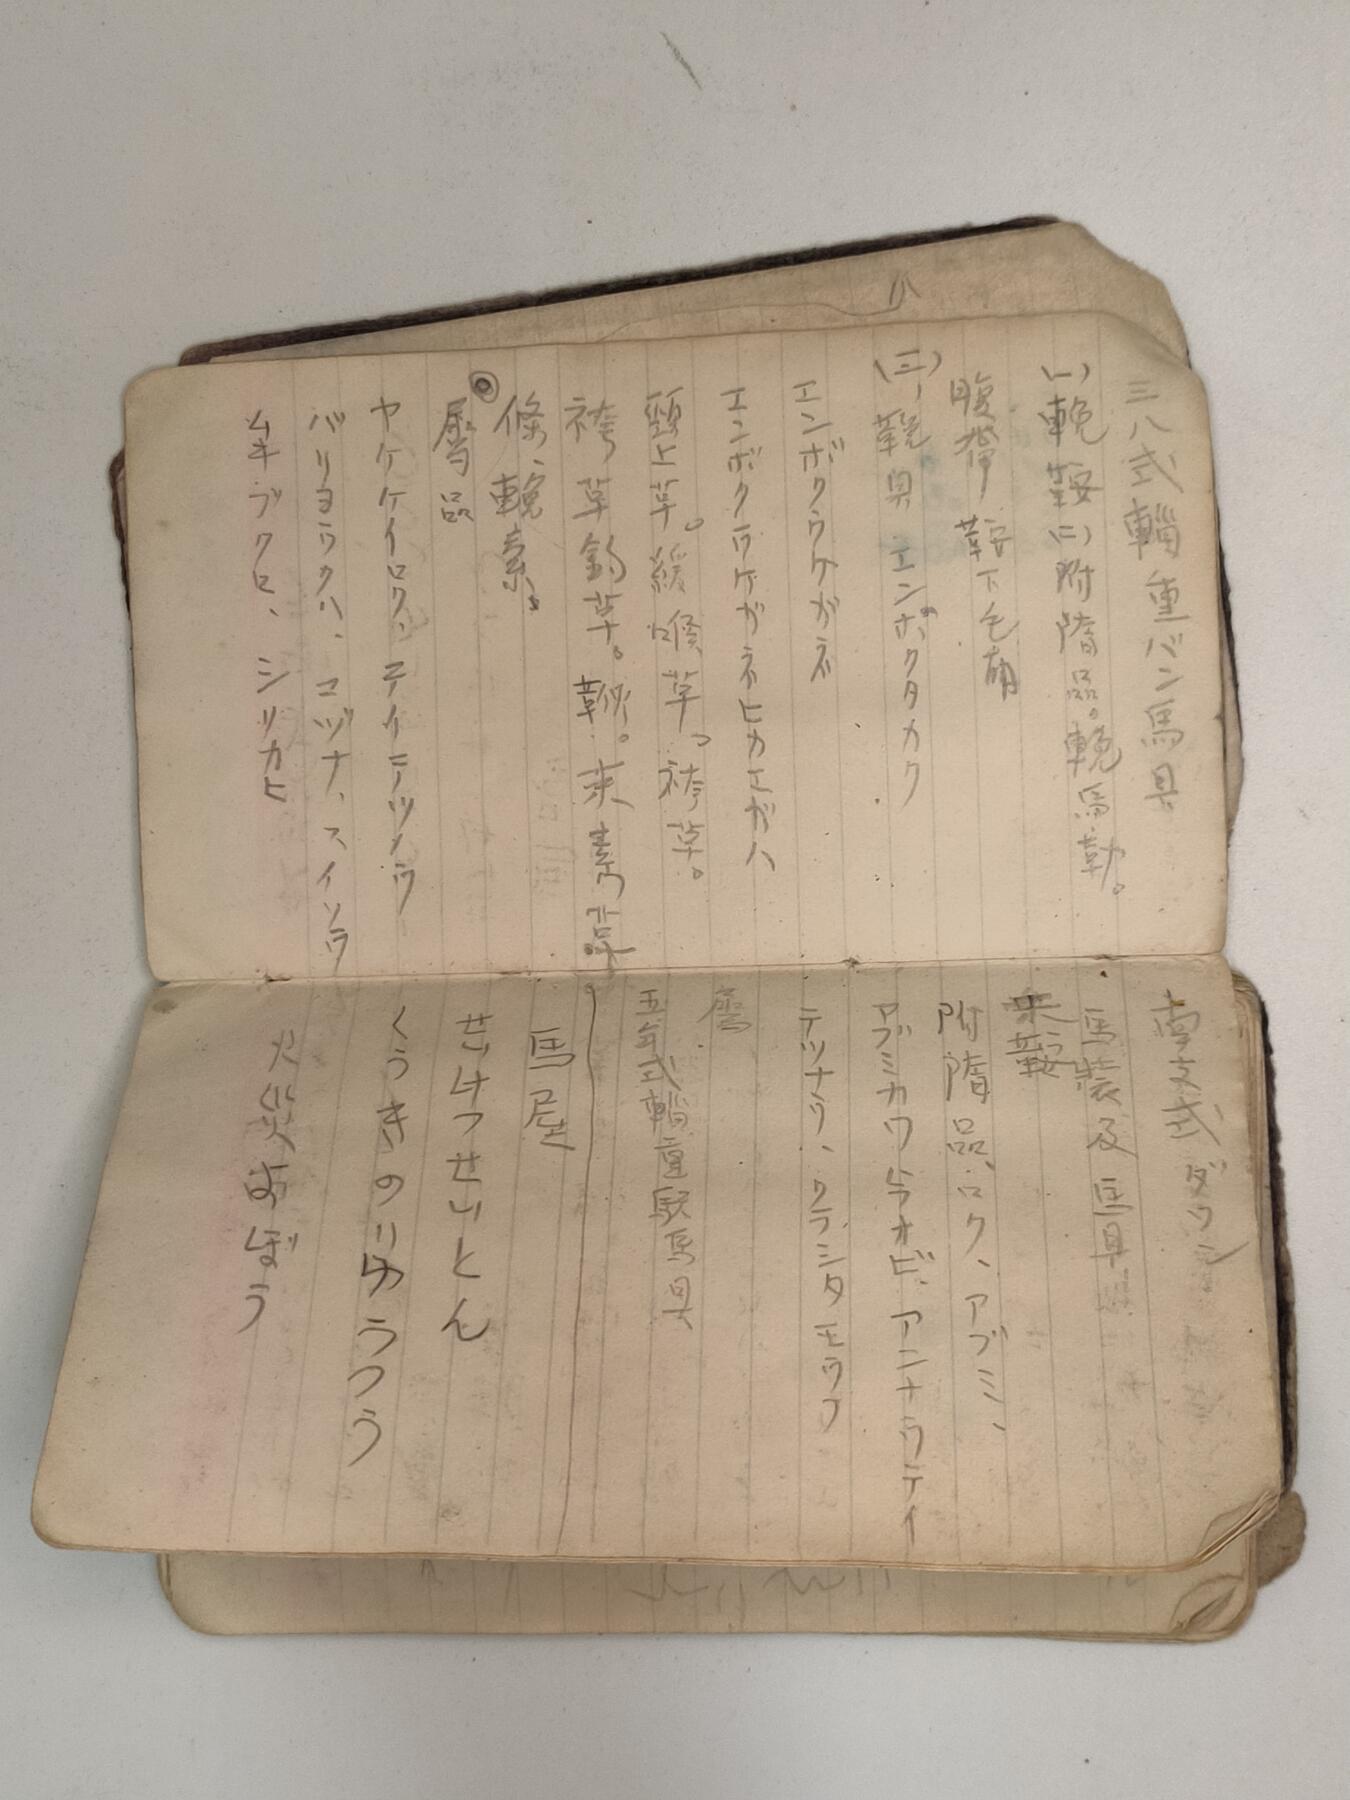 三八式輜重バン馬具
(一)輓鞍(二)附隋品。輓馬勒。
腹帶、鞍下毛布
(三)、輓具 エンボクタカク
エンボクウケガネ
エンボクウケガネヒカエガハ
頸上革。緩喉革。袴革。
袴革釣革。鞦。
條、輓索。
屬品
ヤケケイロク、テイテツノウ
バリヨウクハ、コヅナ、スイソウ
ムギブクロ、シリカヒ
南支式ダウシ
馬裝及馬具
乘鞍
附隋品、ロク、アブミ、
アブミカワ、ムラオビ、アンナウテイ
テツナウ、クラシタモウフ
屬
五年式輜重駄馬具
馬屋
せいけつせいとん
くうきのりゆうつう
火災よぼう